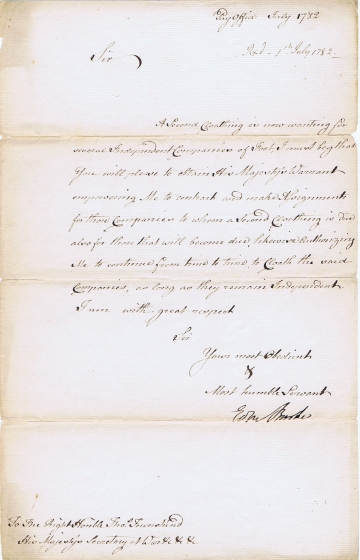 Pay Office July 1782
Rxd. 1st July 1782
Sir
A Second Cloathing is now wanting for
several Independent Companies of Foot, I must beg that
You will please to obtain His Majesty's Warrant
empowering Me to contract and make Assignments
for those Companies to whom a Second Cloathing is due
also for those that will become due, likewise Authorizing
Me to continue from time to time, to Cloath the said
Companies, as long as they remain Independent
I am with great respect
Sir
Your most Obedient
&
Most humble Servant
Edm Burke
To The Right Honble Thos. Townshend
His Majesty's Secretary at War &c &c